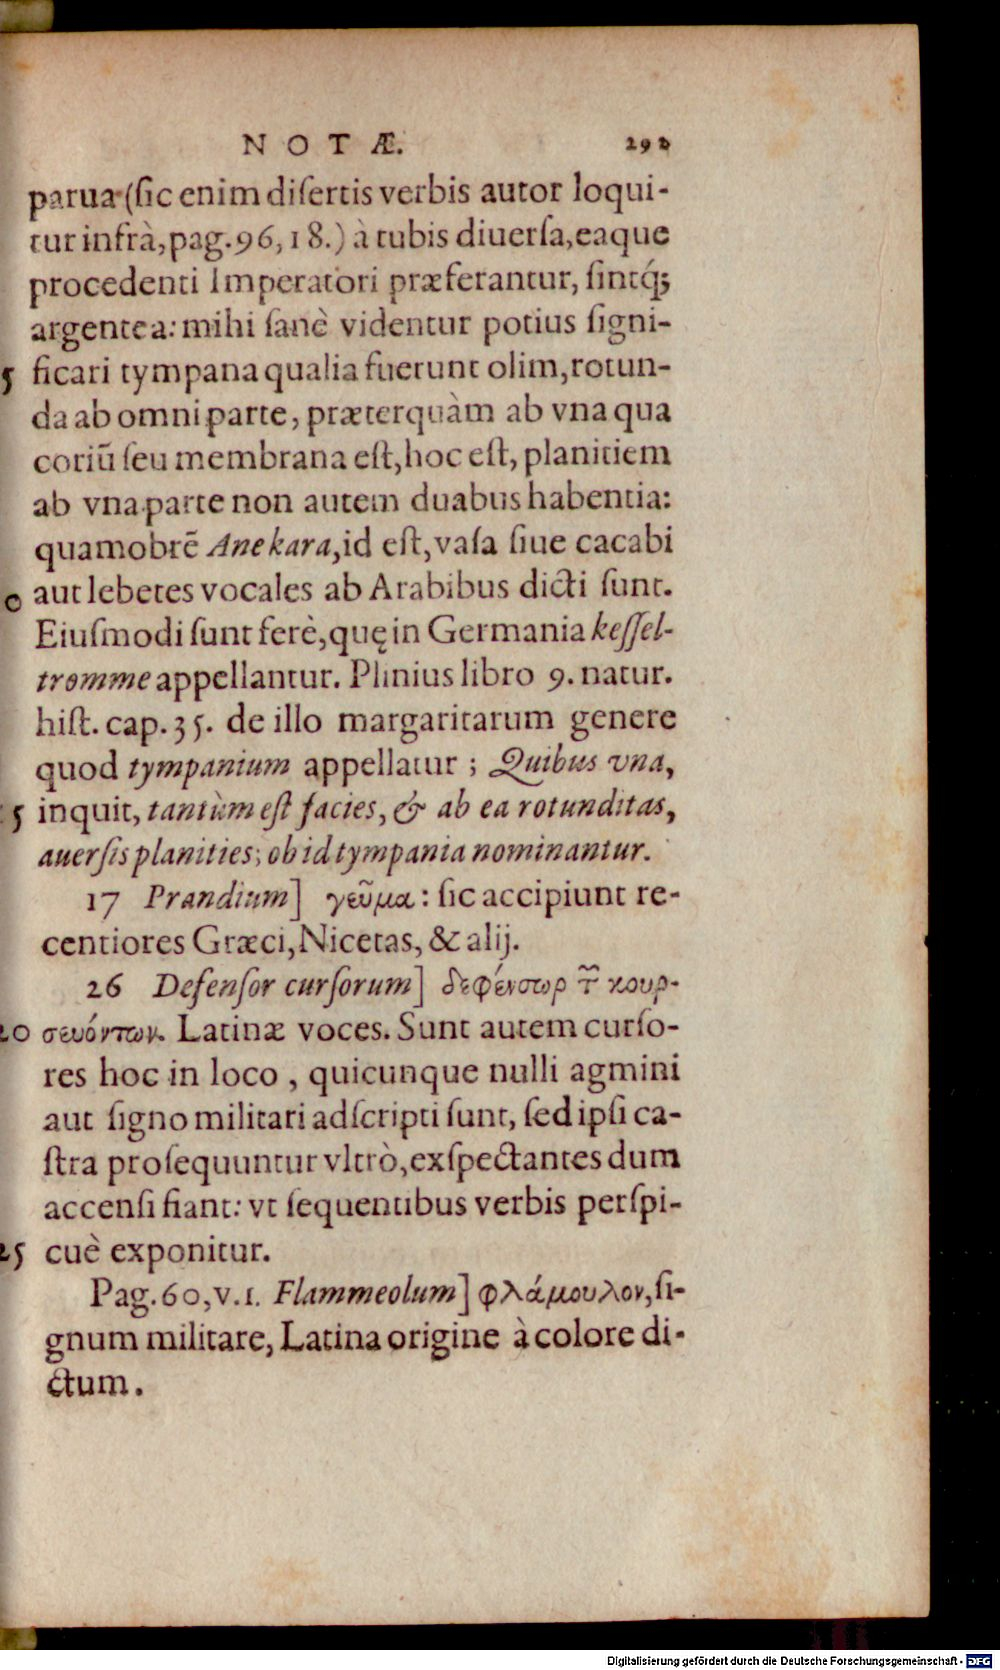 NOTÆ. 291
parua (ſic enim diſertis verbis autor loqui-
tur infrà, pag. 96, 18.) à tubis diuerſa, eaque
procedenti Imperatori præferantur, ſintq́;
argentea: mihi ſanè videntur potius ſigni-
5 ficari tympana qualia fuerunt olim, rotun-
da ab omni parte, præterquàm ab vna qua
coriũ ſeu membrana eſt, hoc eſt, planitiem
ab vna parte non autem duabus habentia:
quamobrẽ Anekara, id eſt, vaſa ſiue cacabi
0 aut lebetes vocales ab Arabibus dicti ſunt.
Eiuſmodi ſunt ferè, quę in Germania keſſel-
tromme appellantur. Plinius libro 9. natur.
hiſt. cap. 35. de illo margaritarum genere
quod tympanium appellatur; Quibus vna,
15 inquit, tantùm eſt facies, & ab ea rotunditas,
auerſis planities; ob id tympania nominantur.
17 Prandium] γεῦμα: ſic accipiunt re-
centiores Græci, Nicetas, & alij.
26 Defenſor curſorum] δεφένσωρ τ͂ κουρ-
20 σευόντων. Latinæ voces. Sunt autem curſo-
res hoc in loco, quicunque nulli agmini
aut ſigno militari adſcripti ſunt, ſed ipſi ca-
ſtra proſequuntur vltrò, exſpectantes dum
accenſi fiant: vt ſequentibus verbis perſpi-
25 cuè exponitur.
Pag. 60, v. 1. Flammeolum] φλάμουλον, ſi-
gnum militare, Latina origine à colore di-
ctum.
Digitalisierung gefördert durch die Deutsche Forschungsgemeinschaft - DFG